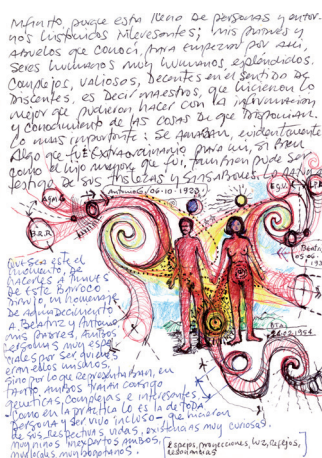 infinito, porque esta lleno de personas y entor-
nos historicos interesantes; mis padres y
Abuelos que conocí, para empezar por ahi,
seres humanos muy humanos, espléndidos.
Complejos, valiosos, Decentes en el sentido De
Discentes, es decir maestros, que hicieron lo
mejor que pudieron hacer con la información
y conocimiento de las cosas de que disponian.
Lo mas importante: se amaban, evidentemente
Algo que fue Extraordinario para mi, si bien
como el hijo mayor que fui, tambien pude ser
testigo de sus tristezas y sinsabores
Antonio G/06-10-1920
A.G.M.
B.R.R.
E.G.V.
Beatriz
05-06-
B.T.A.
1954
Que sea este el
momento, de
hacerles a traves
de este Barroco
Dibujo, un homenaje
De Agradecimiento
A Beatriz y Antonio,
mis padres, ambos
personas muy espe-
ciales por ser quienes
eran ellos mismos,
sino por lo que representaban, en
tanto ambos traian consigo
geneticas, complejas e interesantes,
Como en la practica lo es la de toda
persona y ser vivo incluso- que hicieron
de sus respectivas vidas, existencias muy curiosas.
muy niños inexpertos ambos,
muy locales, muy bogotanos.
[Espejos, proyecciones, luz, reflejos,
resonancias]